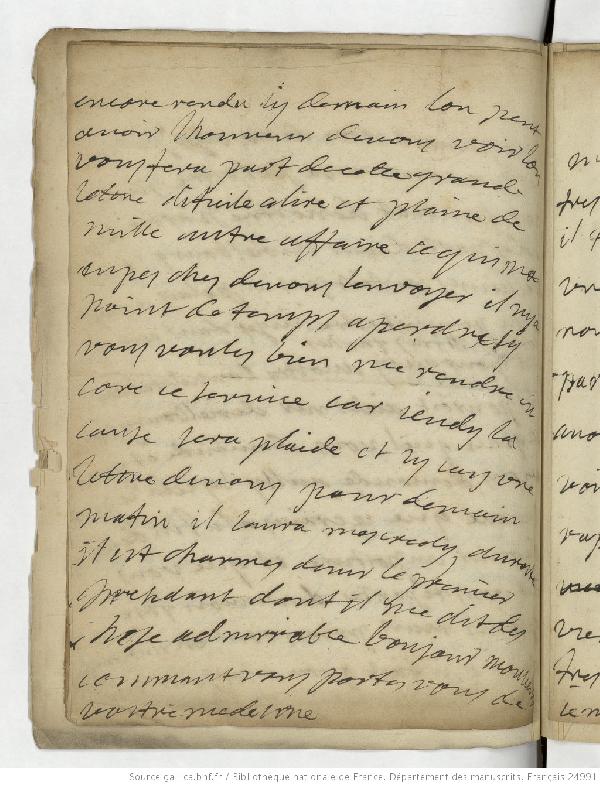 encore rendu sy demain lon peut
avoir lhonneur de vous voir lon
vous fera part de cette grande
letre dificile a lire et plaine de
mille autre affaire ce qui ma
de vous lenvoyer il ny a
point de temps a perdre sy
vous voules bien me rendre en
core ce service car jeudy la
cause sera plaidé et sy jay une
letre de vous pour demain
matin il laura mecredy
il est charmé deme le premier
presidant dont il me dit des
chose admirrable bonjour monsieur
commant vous portes vous de
vostre medecine
m
il
vn
non
par
ano
voi
vap
vre
Source gallica.bnf.fr / Bibliothèque nationale de France. Département des manuscrits. Français 24991